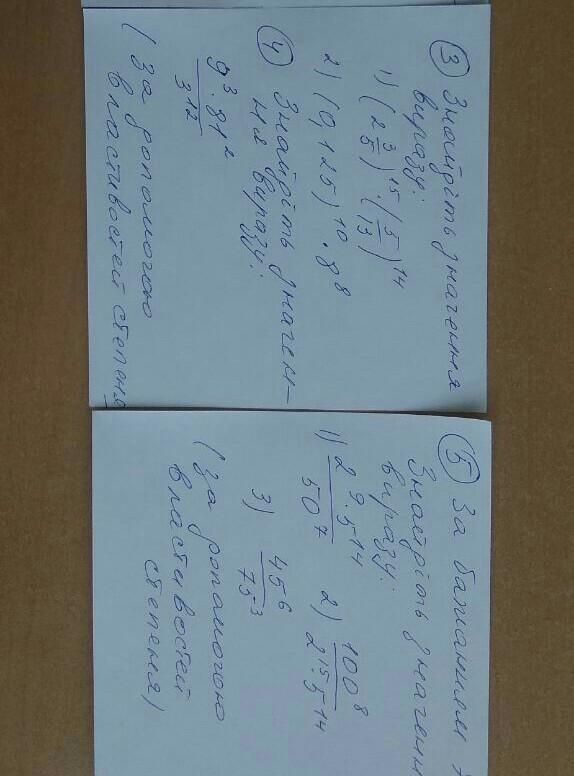 ③ Знайдіть значення
виразу:
1) (2 3/5)^15 · (5/13)^14
2) (0,125)^10 · 8^8
④ Знайдіть значен-
ня виразу:
9^3 · 81^2 / 3^12
(За допомогою
властивостей степеня
⑤ За бажанням
Знайдіть значен
виразу:
1) 2^9 · 5^14 / 50^7 2) 100^8 / 2^15 · 5^14
3) 45^6 / 75^3
(за допомогою
властивостей
степеня)